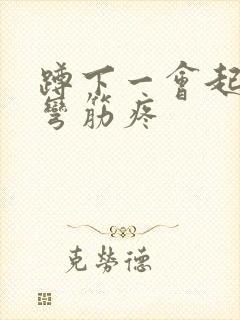 蹲下一會起
彎筋疼
克勞德